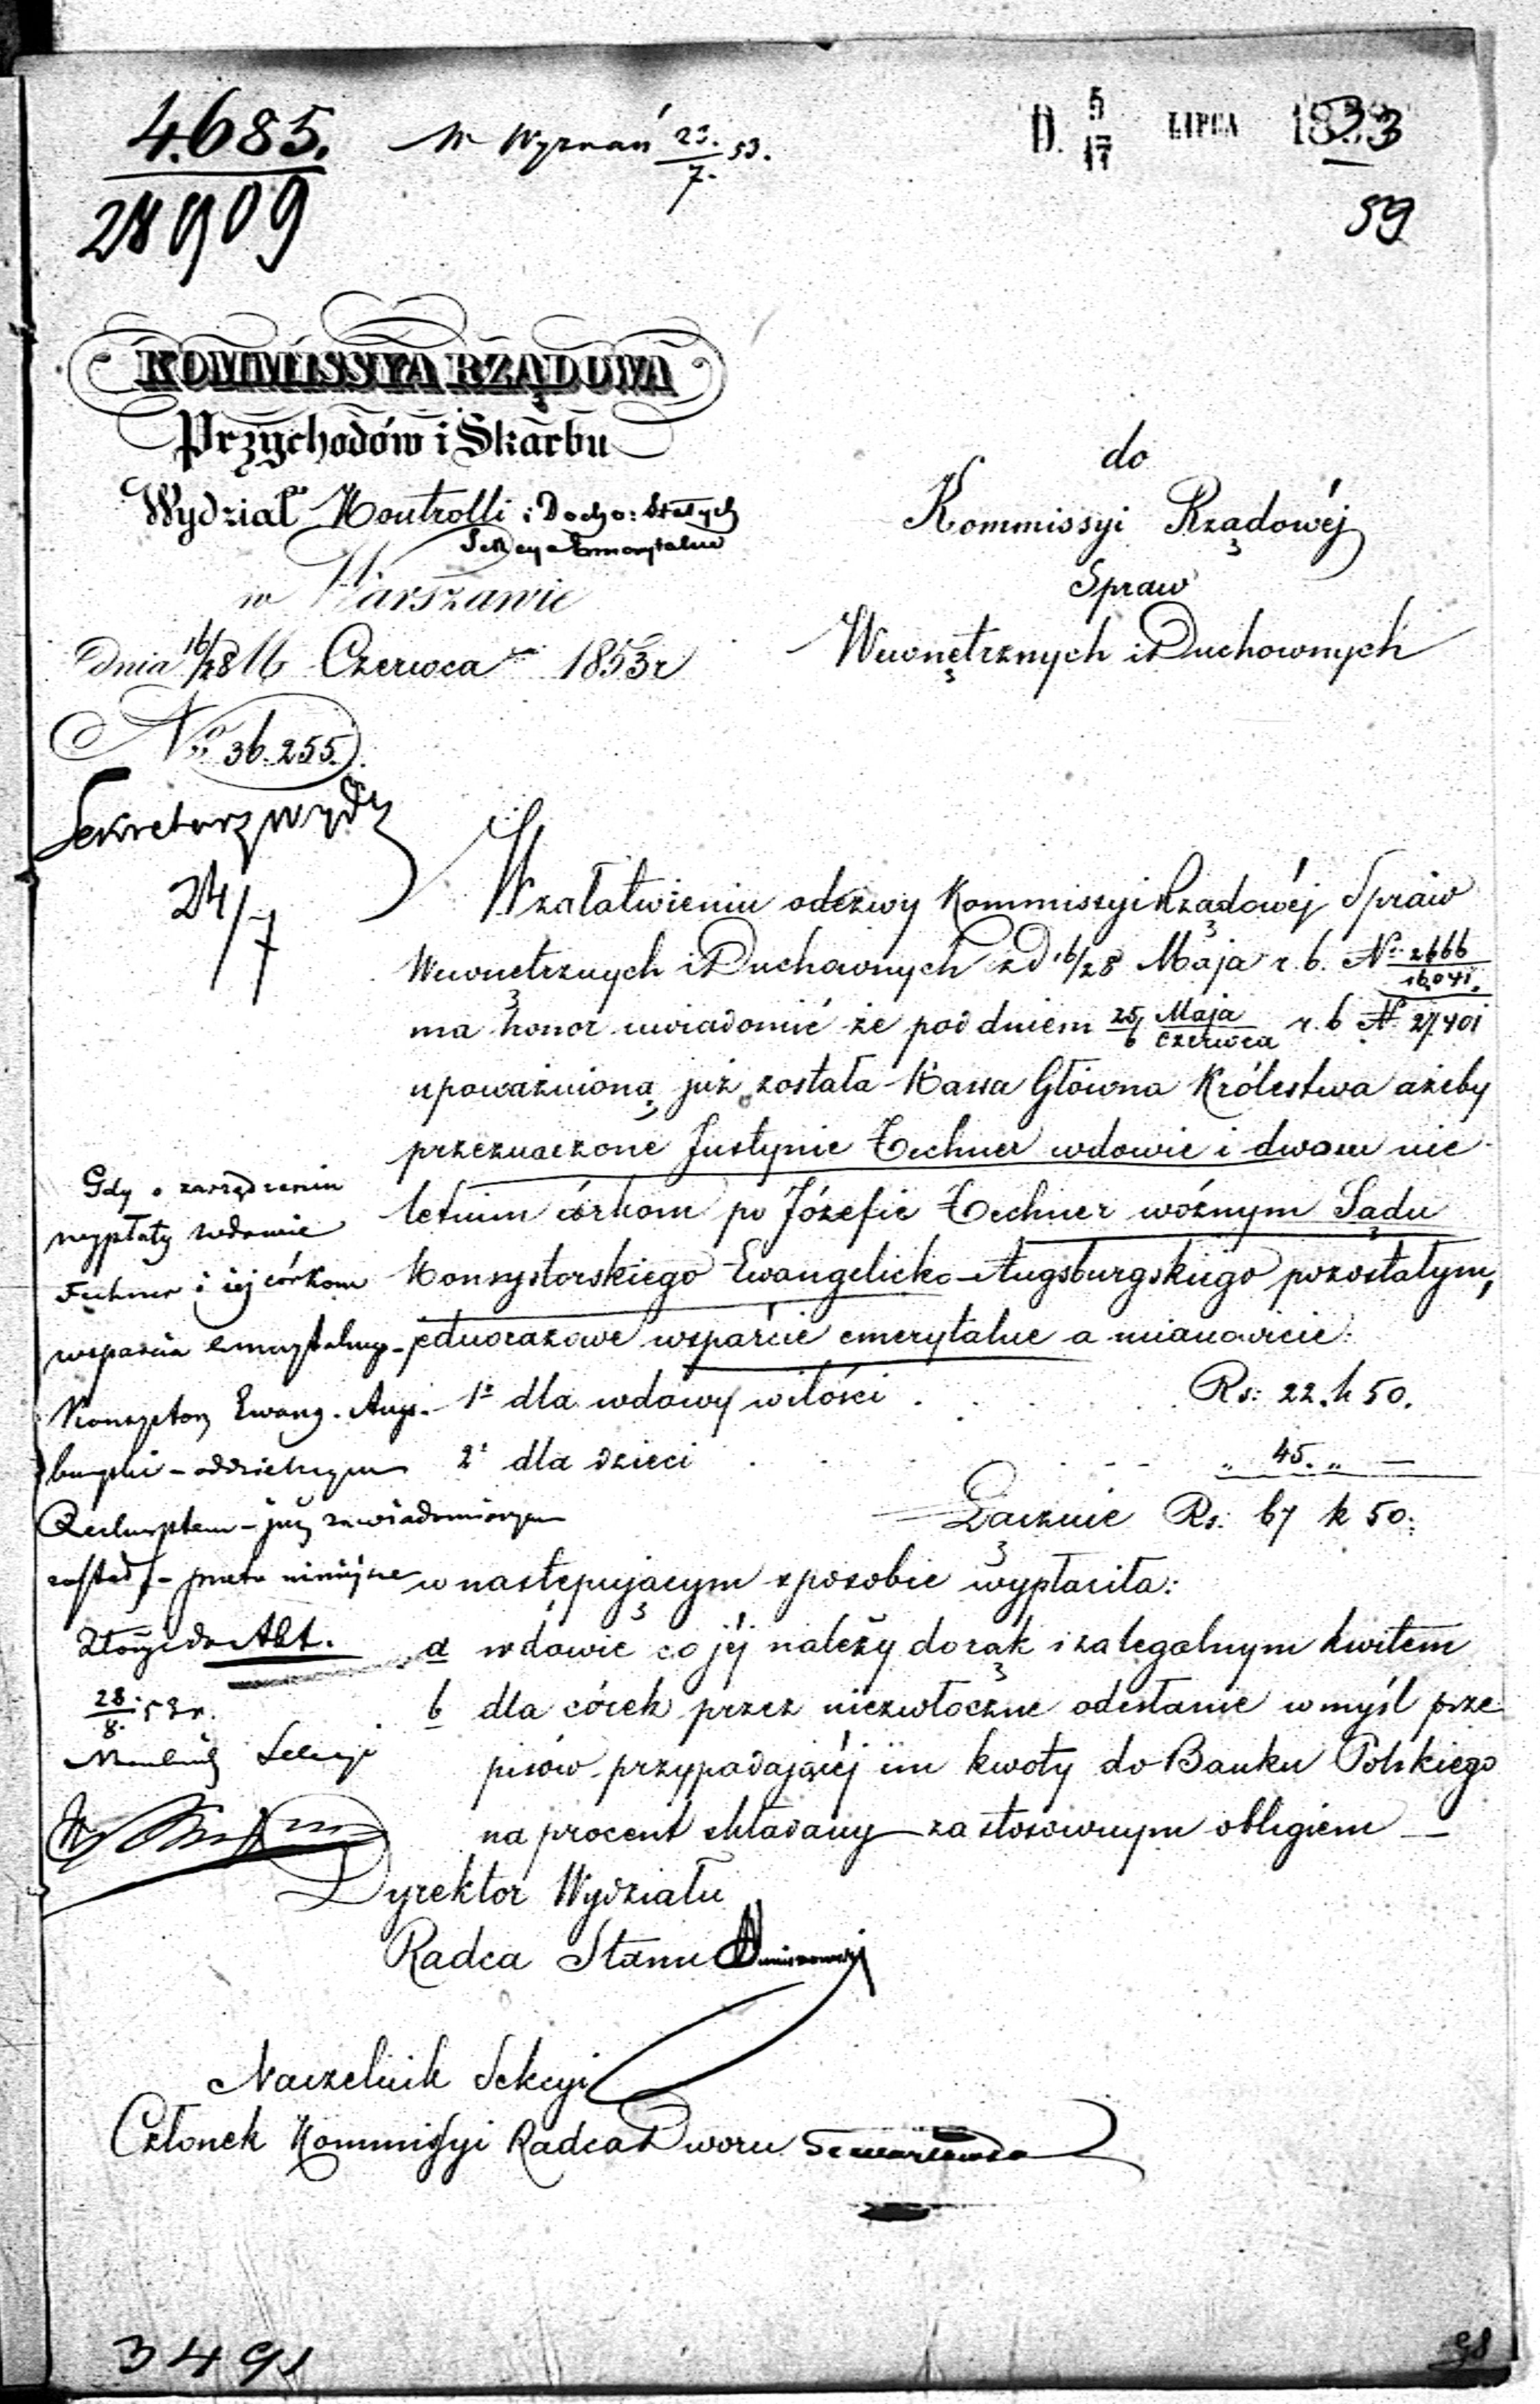 4.685.
28909
W Wyznań 23./7. 53.
D. 5/17 LIPCA 1853
59
KOMMISSYA RZĄDOWA
Przychodów i Skarbu
Wydział Kontrolli i Docho: Stałych
Sekcya Emerytalna
w Warszawie
dnia 16/28 Czerwca 1853 r
No 36.255.
do
Kommissyi Rządowéj
Spraw
Wewnętrznych i Duchownych
Sekretarz Wydz
24/7
W załatwieniu odezwy Kommissyi Rządowéj Spraw
Wewnętrznych i Duchownych z d 16/28 Maja r. b. No 2666/16,041.
ma honor uwiadomić że pod dniem 25 Maja/6 Czerwca r. b No 27,401
upoważnioną już została Kassa Główna Królestwa ażeby
przeznaczone Justynie Fechner wdowie i dwom nie
letnim córkom po Józefie Fechner woźnym Sądu
Konsystorskiego Ewangelicko-Augsburgskiego pozostałym,
jednorazowe wsparcie emerytalne a mianowicie:
1o dla wdowy w ilości . . . . . Rs: 22. k 50.
2o dla dzieci . . . . . „ 45. „ —
Łącznie Rs: 67 k 50.
w następującym sposobie wypłaciła:
a wdowie co jéj należy do rąk i za legalnym kwitem
b dla córek przez niezwłoczne odesłanie w myśl prze
pisów przypadającéj im kwoty do Banku Polskiego
na procent składany za stosownym obligiem —
Gdy o zarządzeniu
wypłaty wdowie
Fechner i jej córkom
wsparcia emerytalnego
Konsystorz Ewang. Augs-
burgski – oddzielnym
Reskryptem – już zawiadomionym
został, – przeto niniejsze
Złożyć do Akt.
28/8. 53 r.
Naczelnik Sekcyi
Dyrektor Wydziału
Radca Stanu
Naczelnik Sekcyi
Członek Kommissyi Radca Dworu
3491
98